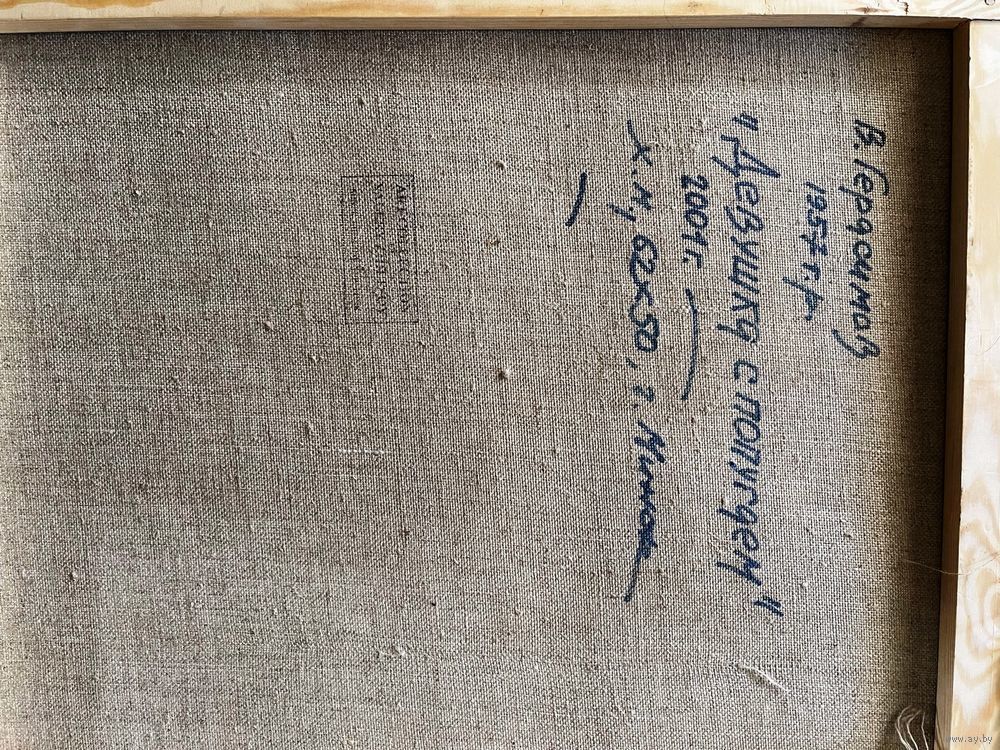 В. Герасимов
1957 г.р.
"Девушка с попугаем"
2001 г.
х.м, 62х50, г. Минск
www.ay.by